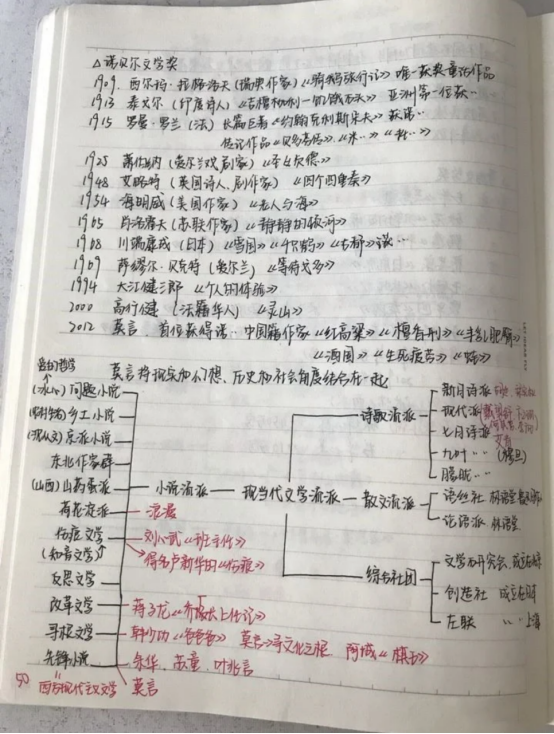 △诺贝尔文学奖
1909. 西尔玛·拉格洛夫(瑞典作家)《骑鹅旅行记》唯一获奖童话作品
1913 泰戈尔(印度诗人)《吉檀枷利——饥饿石头》亚洲第一位获…
1915 罗曼·罗兰(法)长篇巨著《约翰克利斯朵夫》获诺…
传记作品《贝多芬传》
1925 萧伯纳(爱尔兰戏剧家)《圣女贞德》
1948 艾略特(英国诗人.剧作家)《四个四重奏》
1954 海明威(美国作家)《老人与海》
1965 肖洛霍夫(苏联作家)《静静的顿河》
1968 川端康成(日本)《雪国》《千只鹤》《古都》诺…
1969 萨缪尔·贝克特(爱尔兰)《等待戈多》
1994 大江健三郎《个人的体验》
2000 高行健(法籍华人)《灵山》
2012 莫言.首位获得诺…中国籍作家《红高粱》《檀香刑》《丰乳肥臀》
《酒国》《生死疲劳》《蛙》
莫言将现实和幻想、历史和社会角度结合在一起
(冰心)问题小说
乡土小说
(沈从文)京派小说
东北作家群
(山西)山药蛋派
荷花淀派 — 浪漫
伤痕文学 刘心武《班主任》
(知青文学) 得名卢新华的《伤痕》
反思文学
改革文学 蒋子龙《乔厂长上任记》
寻根文学 韩少功《爸爸爸》 莫言 寻文化之根 阿城《棋王》
先锋小说 余华、苏童、叶兆言
西方现代主义文学 莫言
小说流派 — 现当代文学流派 — 散文流派
诗歌流派
新月诗派
现代派
七月诗派 艾青
九叶〃(穆旦)
朦胧〃
语丝社 林语堂
论语派 林语堂
综合社团
文学研究会.成立
创造社 成立
左联 〃 上海